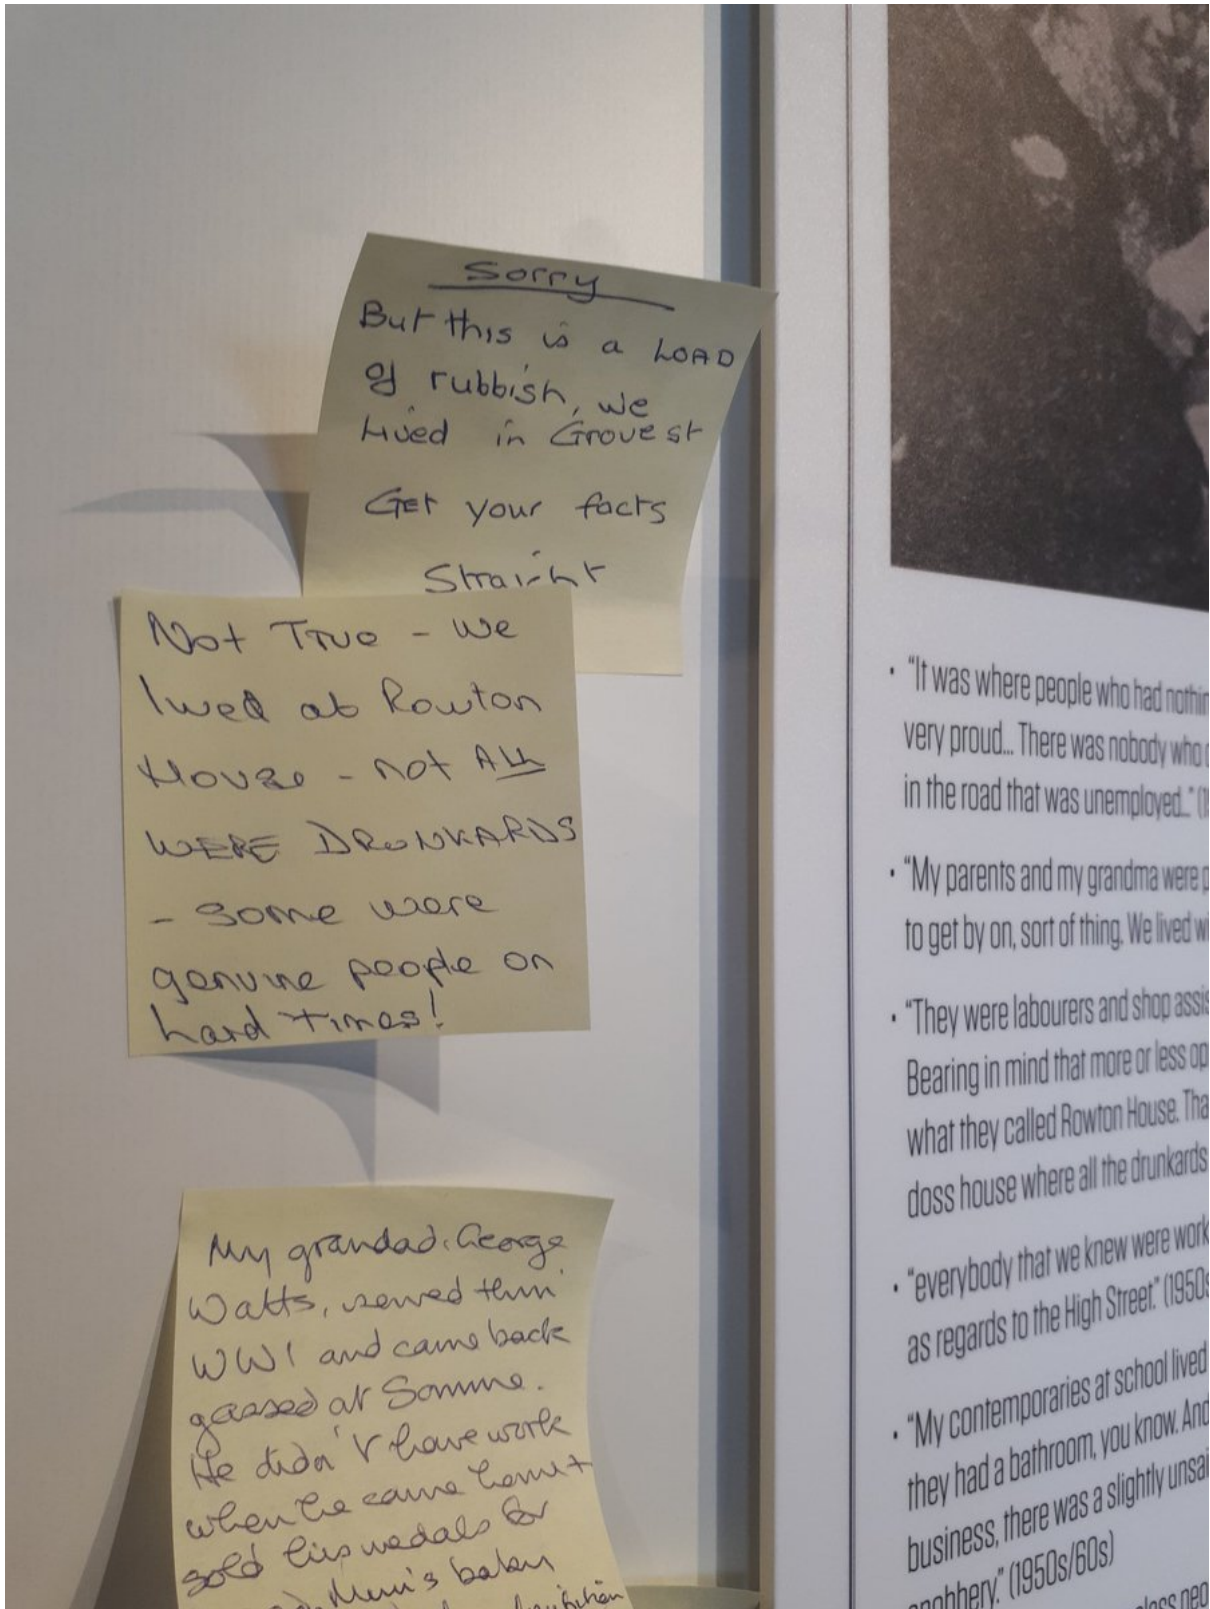 Sorry
But this is a LOAD
of rubbish, we
lived in Grove st
Get your facts
Straight
Not True - we
lived at Rowton
House - not ALL
WERE DRUNKARDS
- some were
genuine people on
hard times!
My grandad, George
Watts, served thru
WW1 and came back
gassed at Somme.
He didn't have work
when he came home +
sold his medals for
baken
• "It was where people who had nothin
very proud... There was nobody who
in the road that was unemployed..."
• "My parents and my grandma were p
to get by on, sort of thing. We lived wi
• "They were labourers and shop assis
Bearing in mind that more or less op
what they called Rowton House. Tha
doss house where all the drunkards
• "everybody that we knew were work
as regards to the High Street." (1950s
• "My contemporaries at school lived
they had a bathroom, you know. And
business, there was a slightly unsai
snobbery." (1950s/60s)